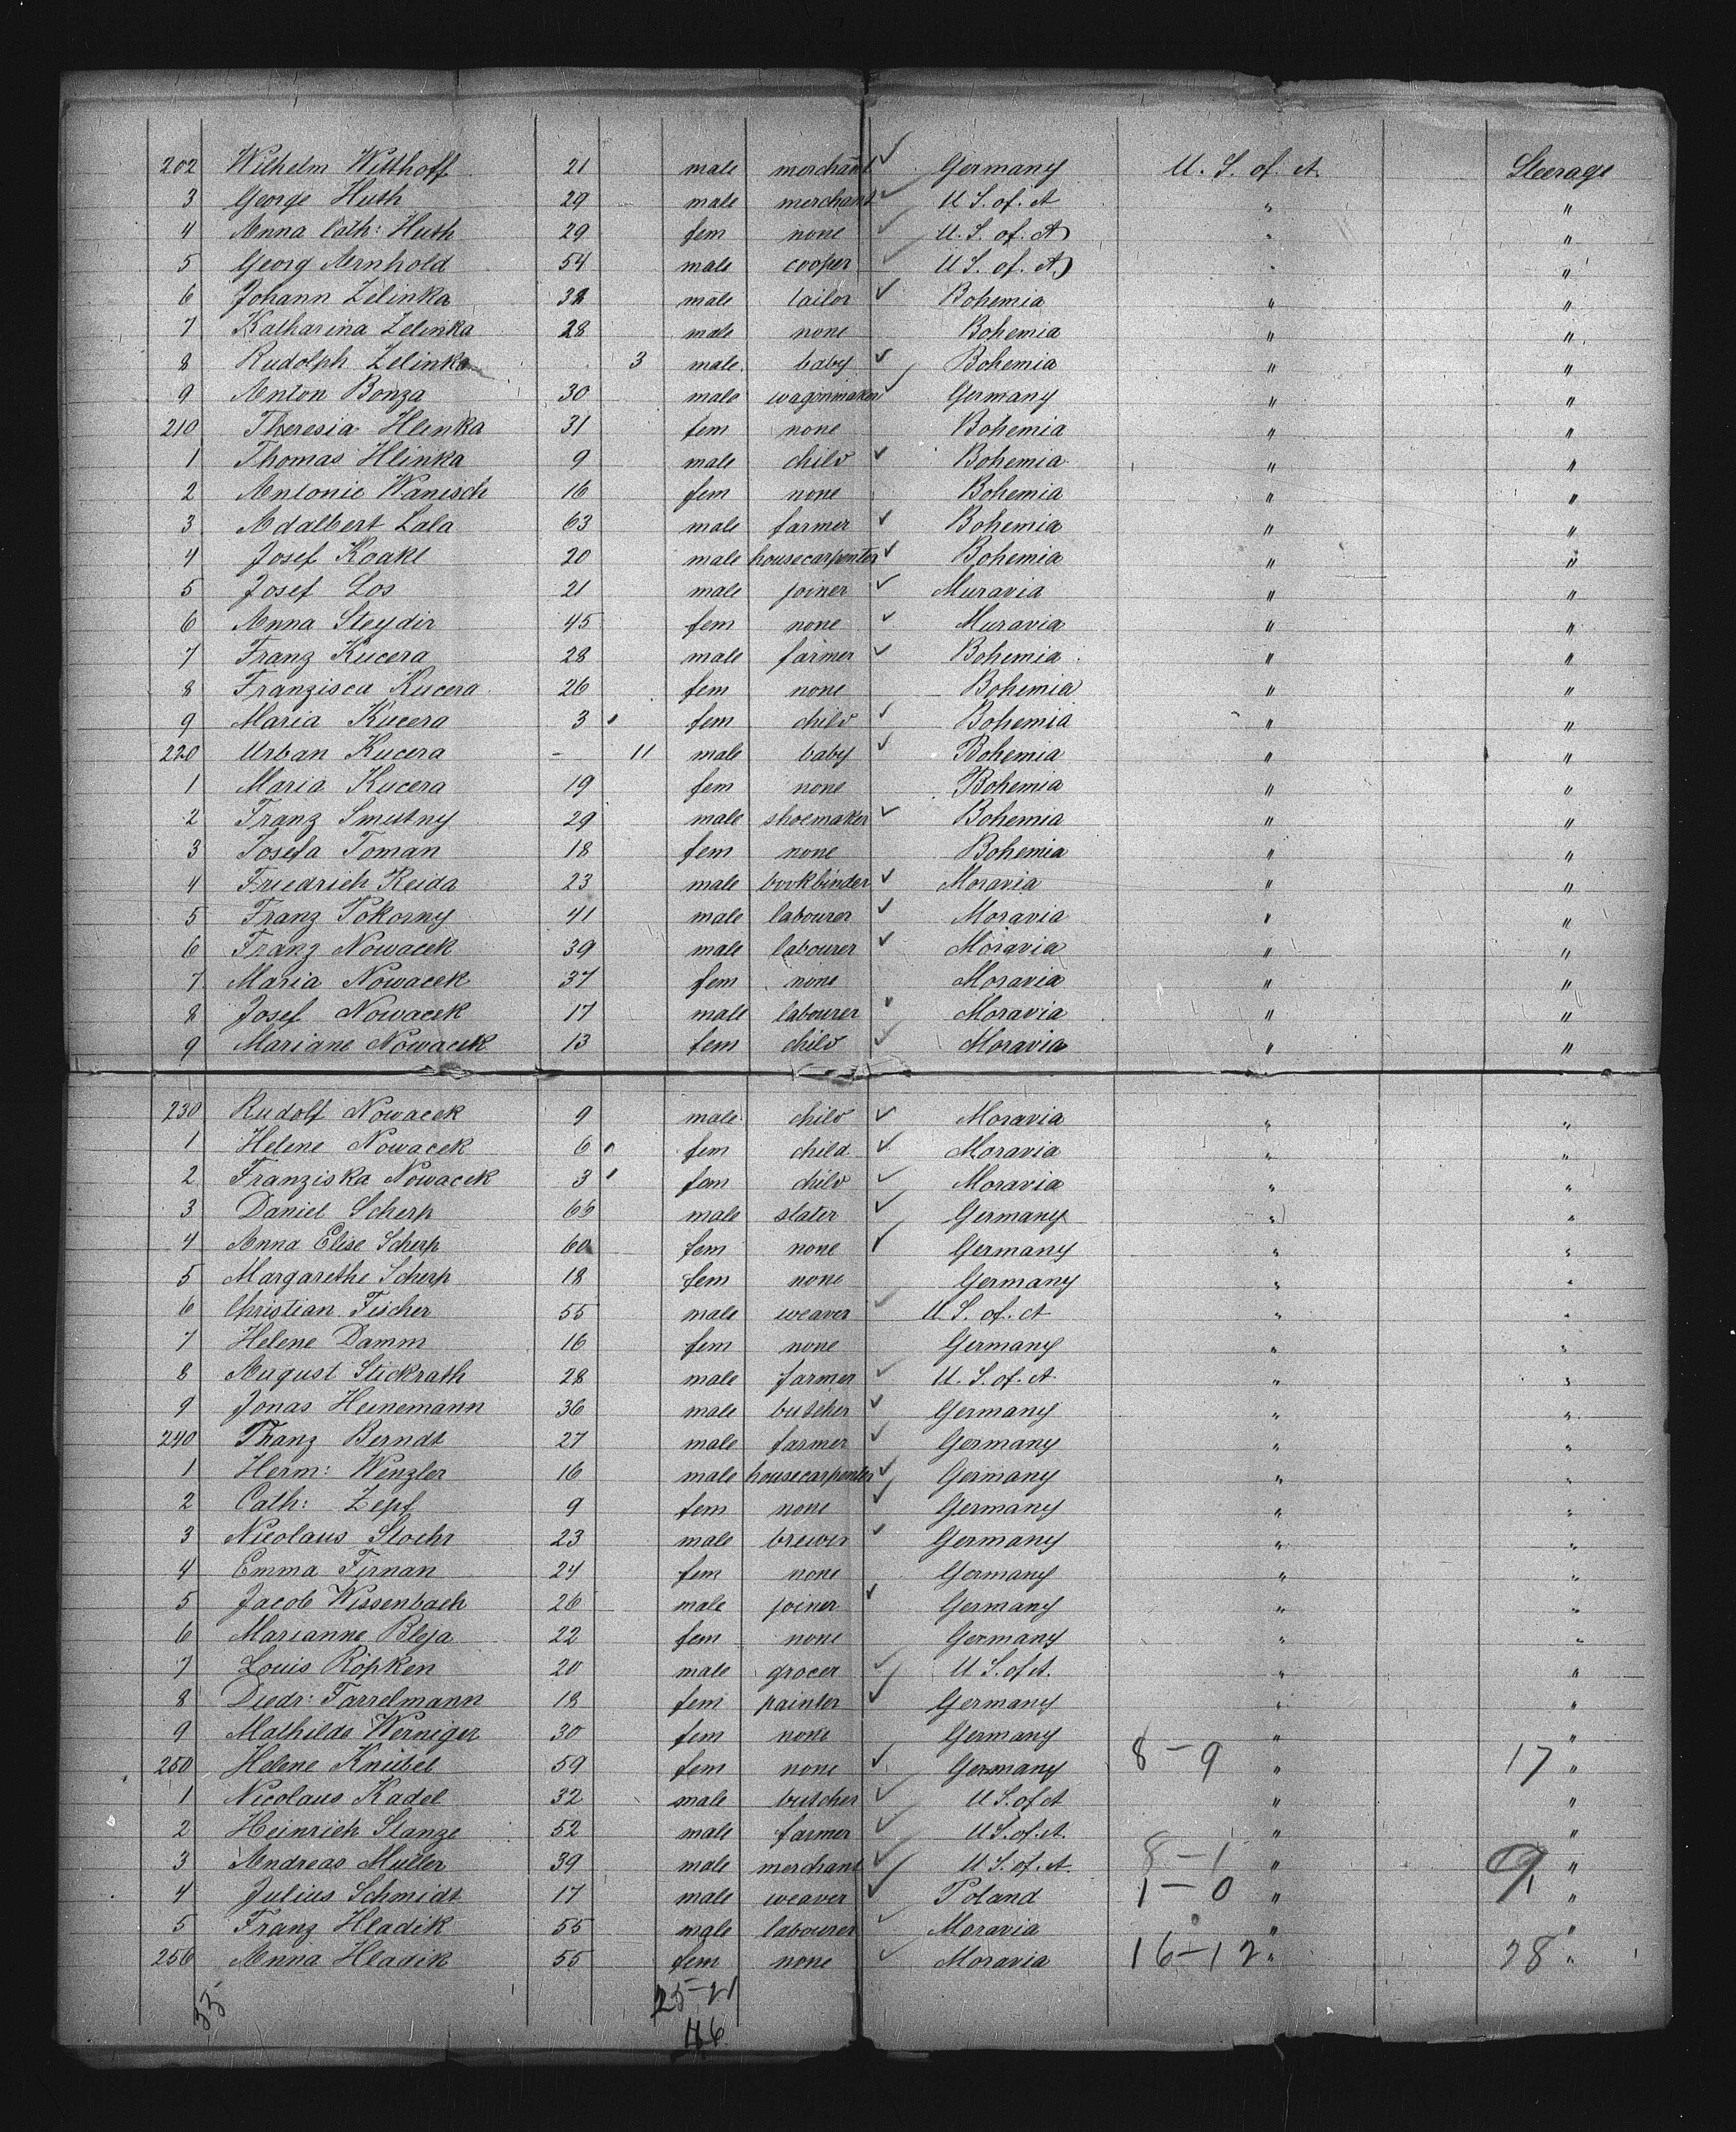 202 Wilhelm Witthoff 21 male merchant ✓ Germany U. S. of. A. Steerage
3 George Huth 29 male merchant ✓ U S. of. A " "
4 Anna Cath: Huth 29 fem none ✓ U. S. of. A) " "
5 Georg Arnhold 54 male cooper ✓ U S. of. A.) " "
6 Johann Zelinka 32 male tailor ✓ Bohemia " "
7 Katharina Zelinka 28 male none Bohemia " "
8 Rudolph Zelinka 3 male baby ✓ Bohemia " "
9 Anton Bonza 30 male wagonmaker ✓ Germany " "
210 Theresia Hlinka 31 fem none Bohemia " "
1 Thomas Hlinka 9 male child ✓ Bohemia " "
2 Antonie Wanisch 16 fem none Bohemia " "
3 Adalbert Lala 63 male farmer ✓ Bohemia " "
4 Josef Koakl 20 male housecarpenter ✓ Bohemia " "
5 Josef Los 21 male joiner ✓ Muravia " "
6 Anna Steydir 45 fem none ✓ Muravia " "
7 Franz Kucera 28 male farmer ✓ Bohemia " "
8 Franzisca Kucera 26 fem none Bohemia " "
9 Maria Kucera 3 fem child ✓ Bohemia " "
220 Urban Kucera - 11 male baby ✓ Bohemia " "
1 Maria Kucera 19 fem none Bohemia " "
2 Franz Smutny 29 male shoemaker ✓ Bohemia " "
3 Josefa Toman 18 fem none Bohemia " "
4 Friedrich Reida 23 male bookbinder ✓ Moravia " "
5 Franz Pokorny 41 male labourer ✓ Moravia " "
6 Franz Nowacek 39 male labourer ✓ Moravia " "
7 Maria Nowacek 37 fem none Moravia " "
8 Josef Nowacek 17 male labourer ✓ Moravia " "
9 Mariane Nowacek 13 fem child ✓ Moravia " "
230 Rudolf Nowacek 9 male child ✓ Moravia " "
1 Helene Nowacek 6 fem child ✓ Moravia " "
2 Franziska Nowacek 3 fem child ✓ Moravia " "
3 Daniel Scherp 66 male slater ✓ Germany " "
4 Anna Elise Scherp 60 fem none ✓ Germany " "
5 Margarethe Scherp 18 fem none Germany " "
6 Christian Fischer 55 male weaver ✓ U. S. of. A " "
7 Helene Damm 16 fem none Germany " "
8 August Stickrath 28 male farmer ✓ U. S. of. A " "
9 Jonas Heinemann 36 male butcher ✓ Germany " "
240 Franz Berndt 27 male farmer ✓ Germany " "
1 Herm: Wenzler 16 male housecarpenter ✓ Germany " "
2 Cath: Zepf 9 fem none ✓ Germany " "
3 Nicolaus Stoehr 23 male brewer ✓ Germany " "
4 Emma Firnan 24 fem none Germany " "
5 Jacob Wissenbach 26 male joiner ✓ Germany " "
6 Marianne Bleja 22 fem none Germany " "
7 Louis Röpken 20 male grocer ✓ U S. of A. " "
8 Diedr: Farrelmann 18 fem painter ✓ Germany " "
9 Mathilde Werniger 30 fem none Germany " "
250 Helene Knübel 59 fem none ✓ Germany 8-9 " 17 "
1 Nicolaus Kadel 32 male butcher ✓ U S. of A " "
2 Heinrich Stange 52 male farmer ✓ U S. of. A. " "
3 Andreas Müller 39 male merchant ✓ U S. of. A. 8-1 " 9 "
4 Julius Schmidt 17 male weaver ✓ Poland 1-0 " 1 "
5 Franz Hladik 55 male labourer ✓ Moravia " "
256 Anna Hladik 55 fem none ✓ Moravia 16-12 " 28 "
25-21
46